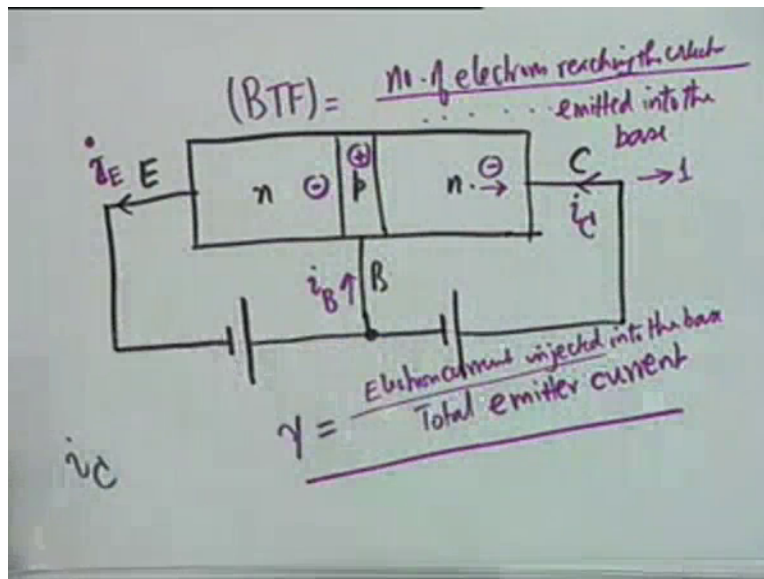 (BTF) = no. of electrons reaching the
. . . . . . emitted into the
base
i_E E n ⊖ ⊕ p n ⊖ → C → 1
i_C
i_B ↑ B
γ = Electron current injected into the base
Total emitter current
i_C